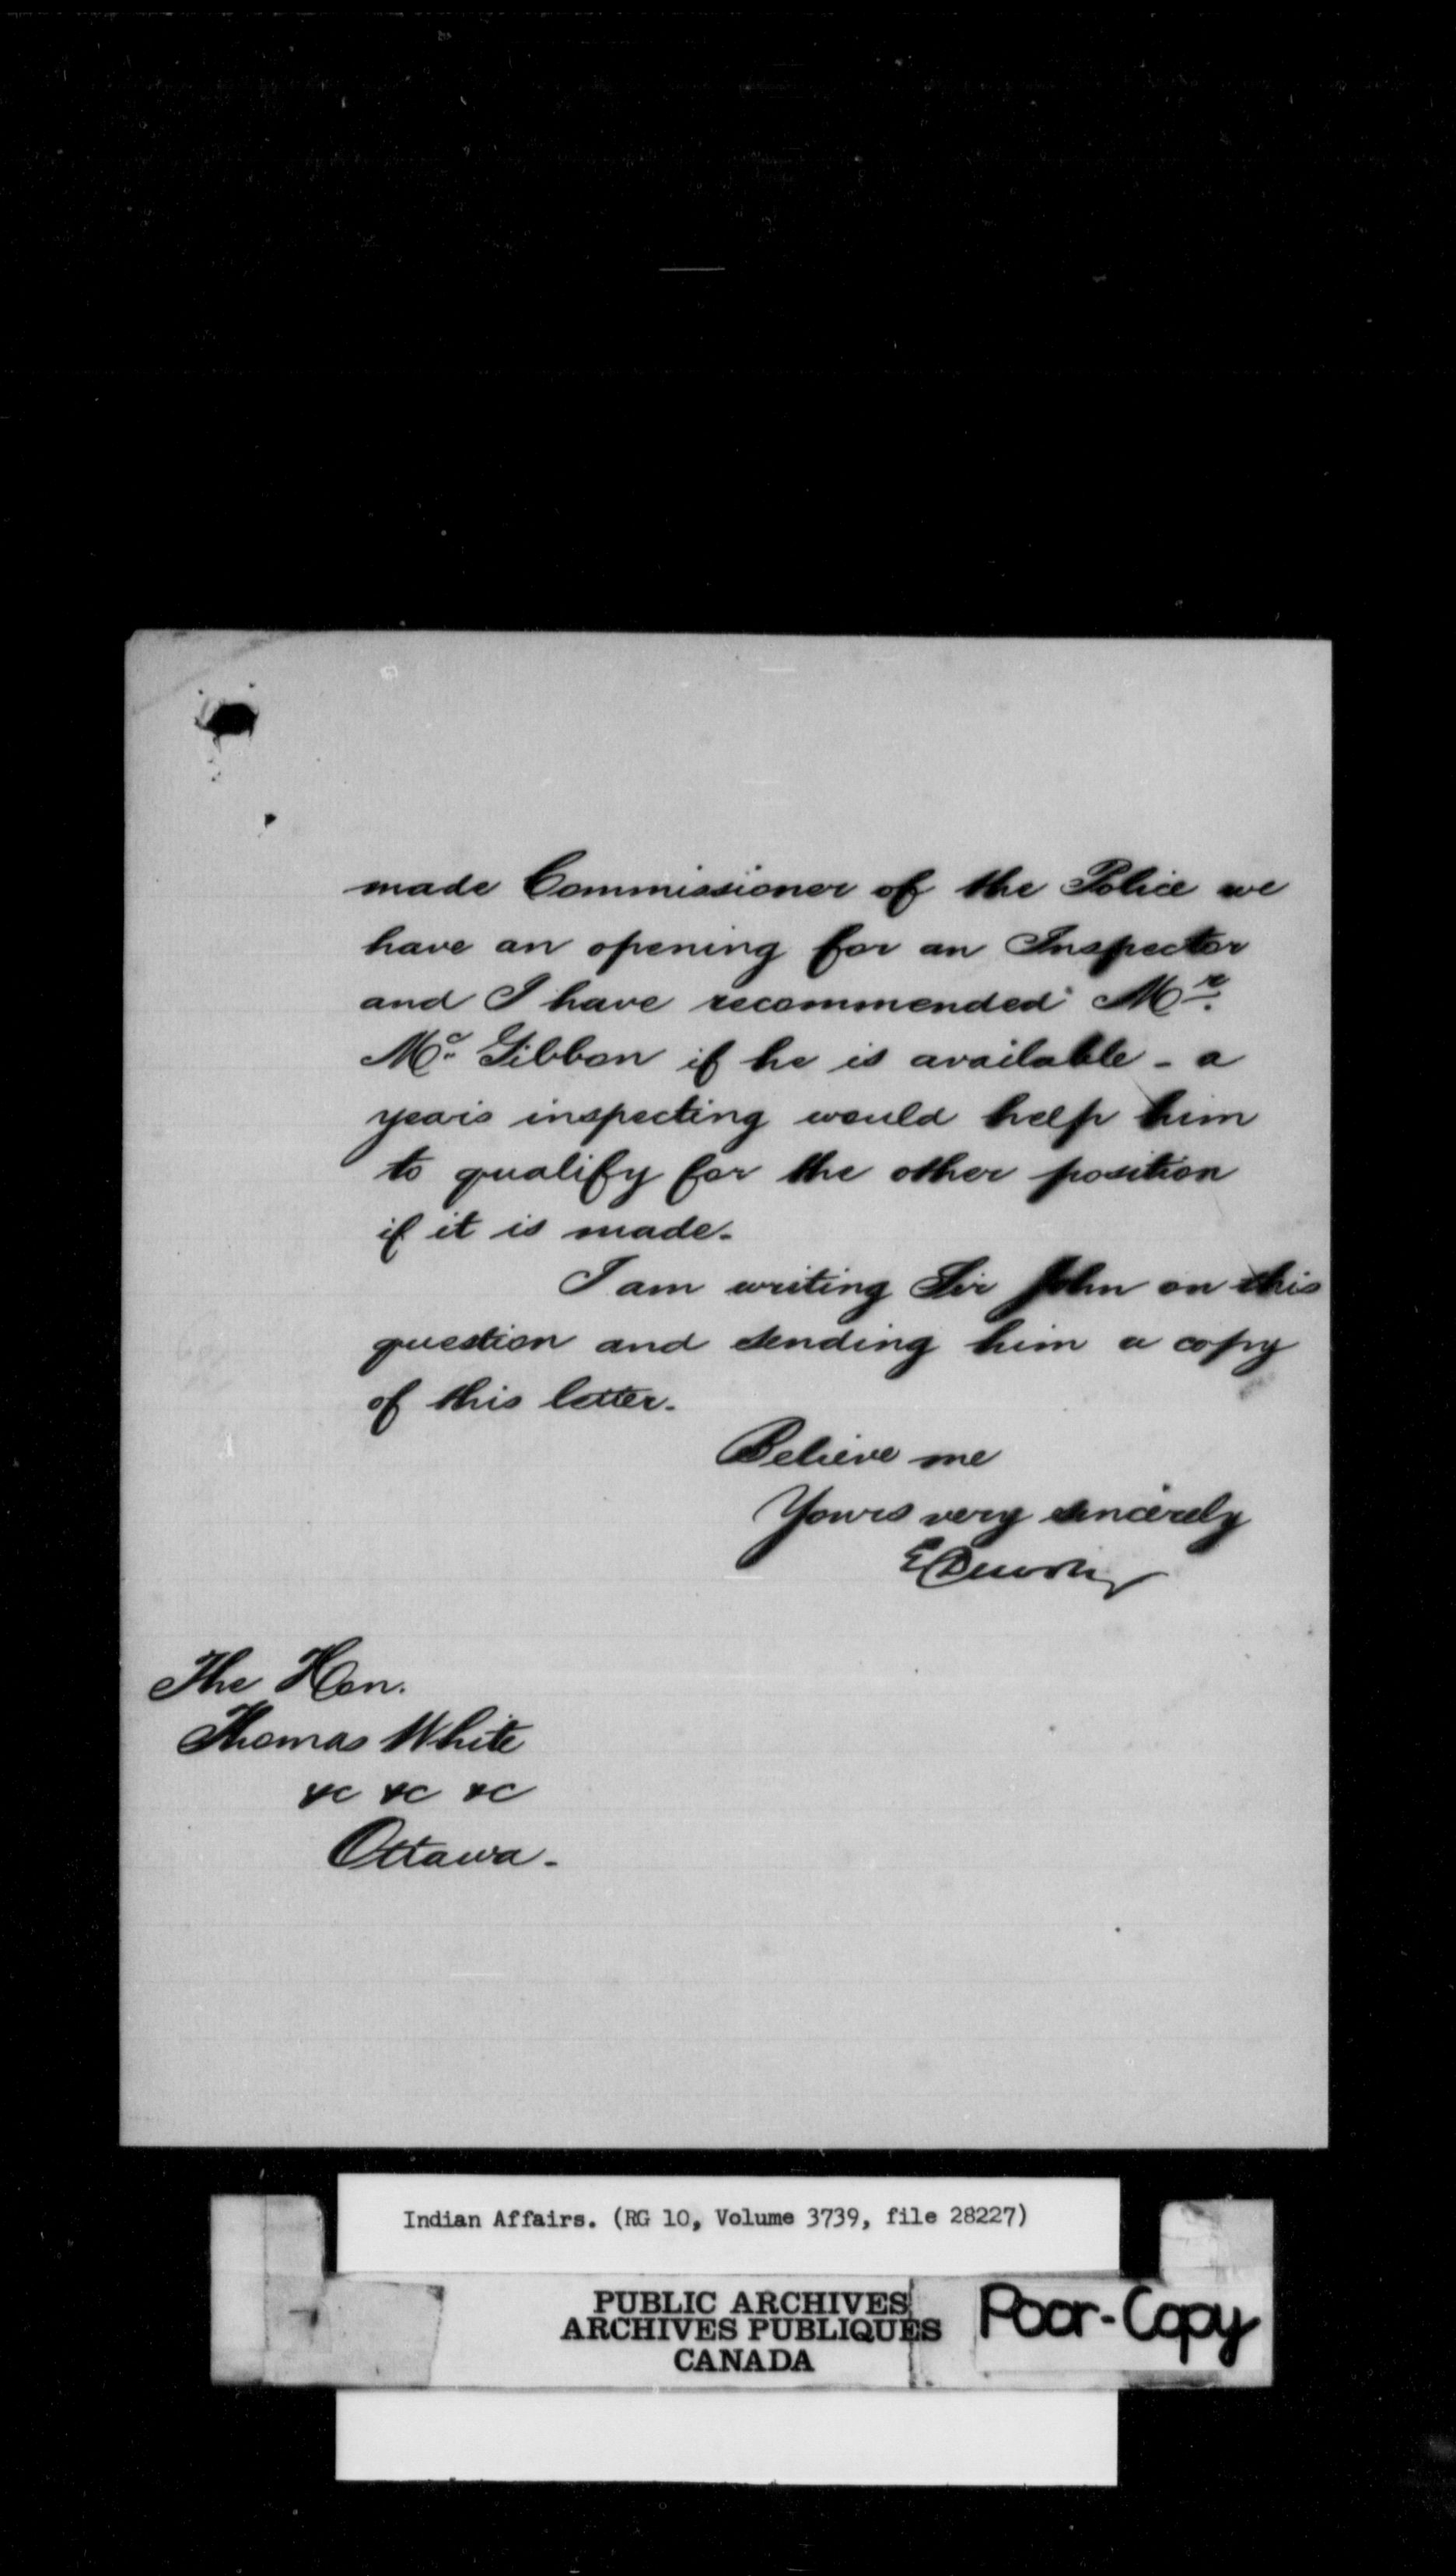 made Commissioner of the Police we
have an opening for an Inspector
and I have recommended Mr.
Mc. Gibbon if he is available - a
years inspecting would help him
to qualify for the other position
if it is made.
I am writing Sir John on this
question and sending him a copy
of this letter.
Believe me
Yours very sincerely
E Dewdney
The Hon.
Thomas White
&c &c &c
Ottawa.
Indian Affairs. (RG 10, Volume 3739, file 28227)
PUBLIC ARCHIVES
ARCHIVES PUBLIQUES
CANADA
Poor-Copy